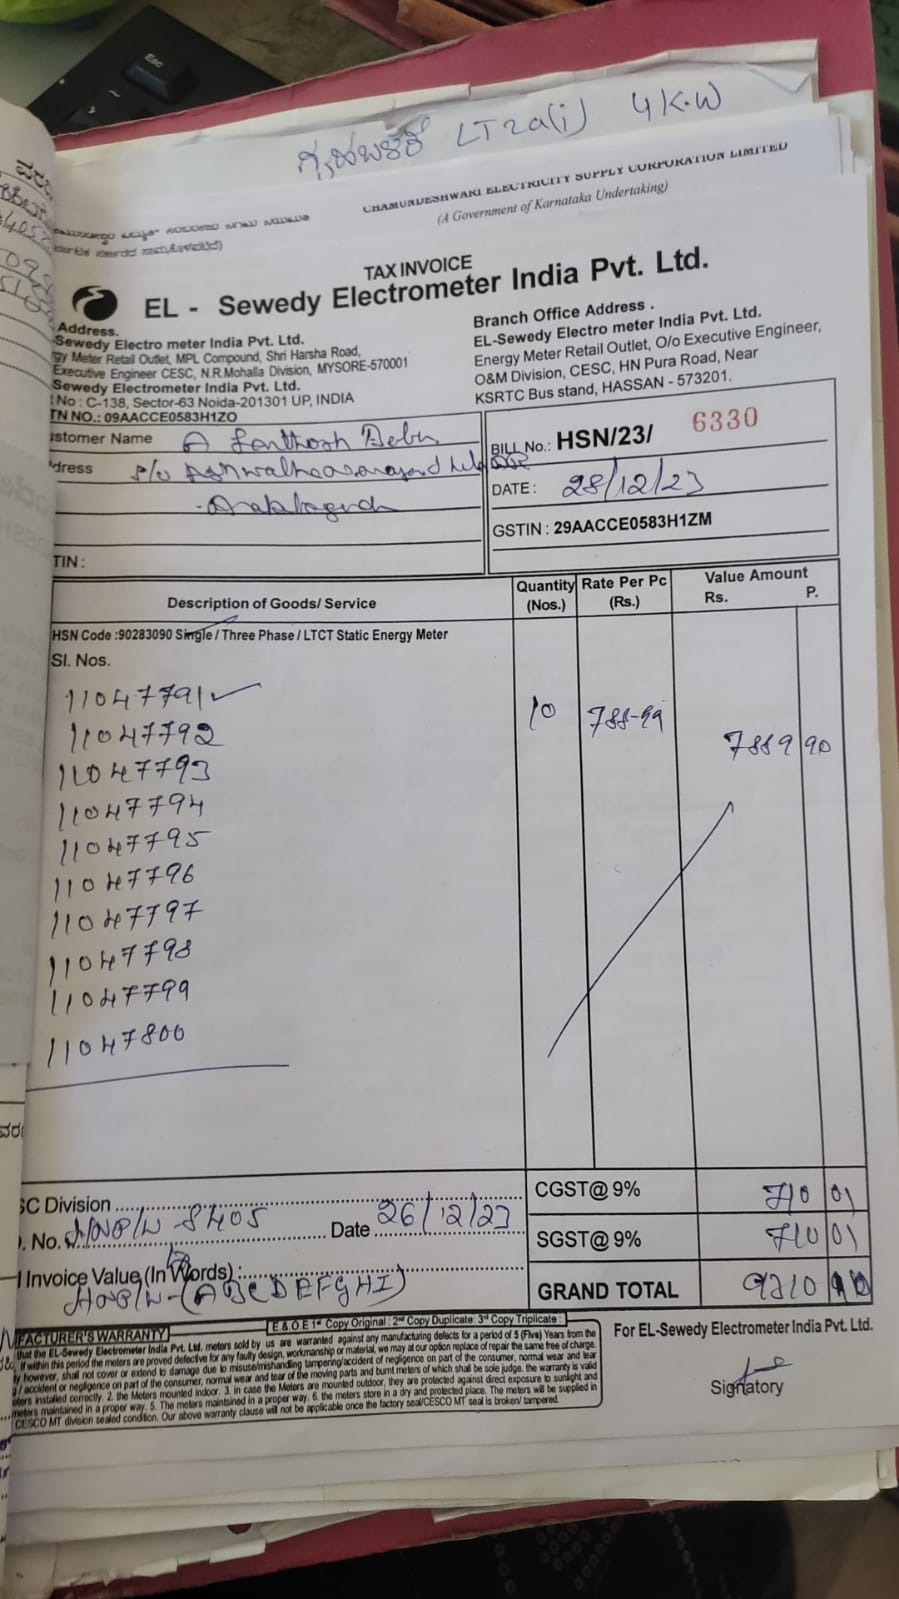 ಗೃಹಬಳಕೆ LT2a(i) 4K.W
CHAMUNDESHWARI ELECTRICITY SUPPLY CORPORATION LIMITED
(A Government of Karnataka Undertaking)
TAX INVOICE
EL - Sewedy Electrometer India Pvt. Ltd.
Address.
Sewedy Electro meter India Pvt. Ltd.
gy Meter Retail Outlet, MPL Compound, Shri Harsha Road,
Executive Engineer CESC, N.R.Mohalla Division, MYSORE-570001
Sewedy Electrometer India Pvt. Ltd.
No : C-138, Sector-63 Noida-201301 UP, INDIA
TN NO.: 09AACCE0583H1ZO
Branch Office Address .
EL-Sewedy Electro meter India Pvt. Ltd.
Energy Meter Retail Outlet, O/o Executive Engineer,
O&M Division, CESC, HN Pura Road, Near
KSRTC Bus stand, HASSAN - 573201.
ustomer Name A
dress S/o
TIN :
BILL No.: HSN/23/ 6330
DATE : 28/12/23
GSTIN : 29AACCE0583H1ZM
Description of Goods/ Service Quantity (Nos.) Rate Per Pc (Rs.) Value Amount Rs. P.
HSN Code :90283090 Single / Three Phase / LTCT Static Energy Meter
Sl. Nos.
11047791
10 788-99
11047792
7889 90
11047793
11047794
11047795
11047796
11047797
11047798
11047799
11047800
SC Division
CGST@ 9% 710 01
. No. 8405 Date 26/12/23
SGST@ 9% 710 01
l Invoice Value (In Words) :
(ABCDEFGHI)
GRAND TOTAL 9310
E & O E 1st Copy Original : 2nd Copy Duplicate: 3rd Copy Triplicate :
FACTURER'S WARRANTY
that the EL-Sewedy Electrometer India Pvt. Ltd. meters sold by us are warranted against any manufacturing defects for a period of 5 (Five) Years from the
If within this period the meters are proved defective for any faulty design, workmanship or material, we may at our option replace of repair the same free of charge.
y however, shall not cover or extend to damage due to misuse/mishandling tampering/accident of negligence on part of the consumer, normal wear and tear
/ accident or negligence on part of the consumer, normal wear and tear of the moving parts and burnt meters of which shall be sole judge. the warranty is valid
eters installed correctly. 2. the Meters mounted indoor. 3. in case the Meters are mounted outdoor, they are protected against direct exposure to sunlight and
meters maintained in a proper way. 5. The meters maintained in a proper way. 6. the meters store in a dry and protected place. The meters will be supplied in
CESCO MT division sealed condition. Our above warranty clause will not be applicable once the factory seal/CESCO MT seal is broken/ tampered.
For EL-Sewedy Electrometer India Pvt. Ltd.
Signatory